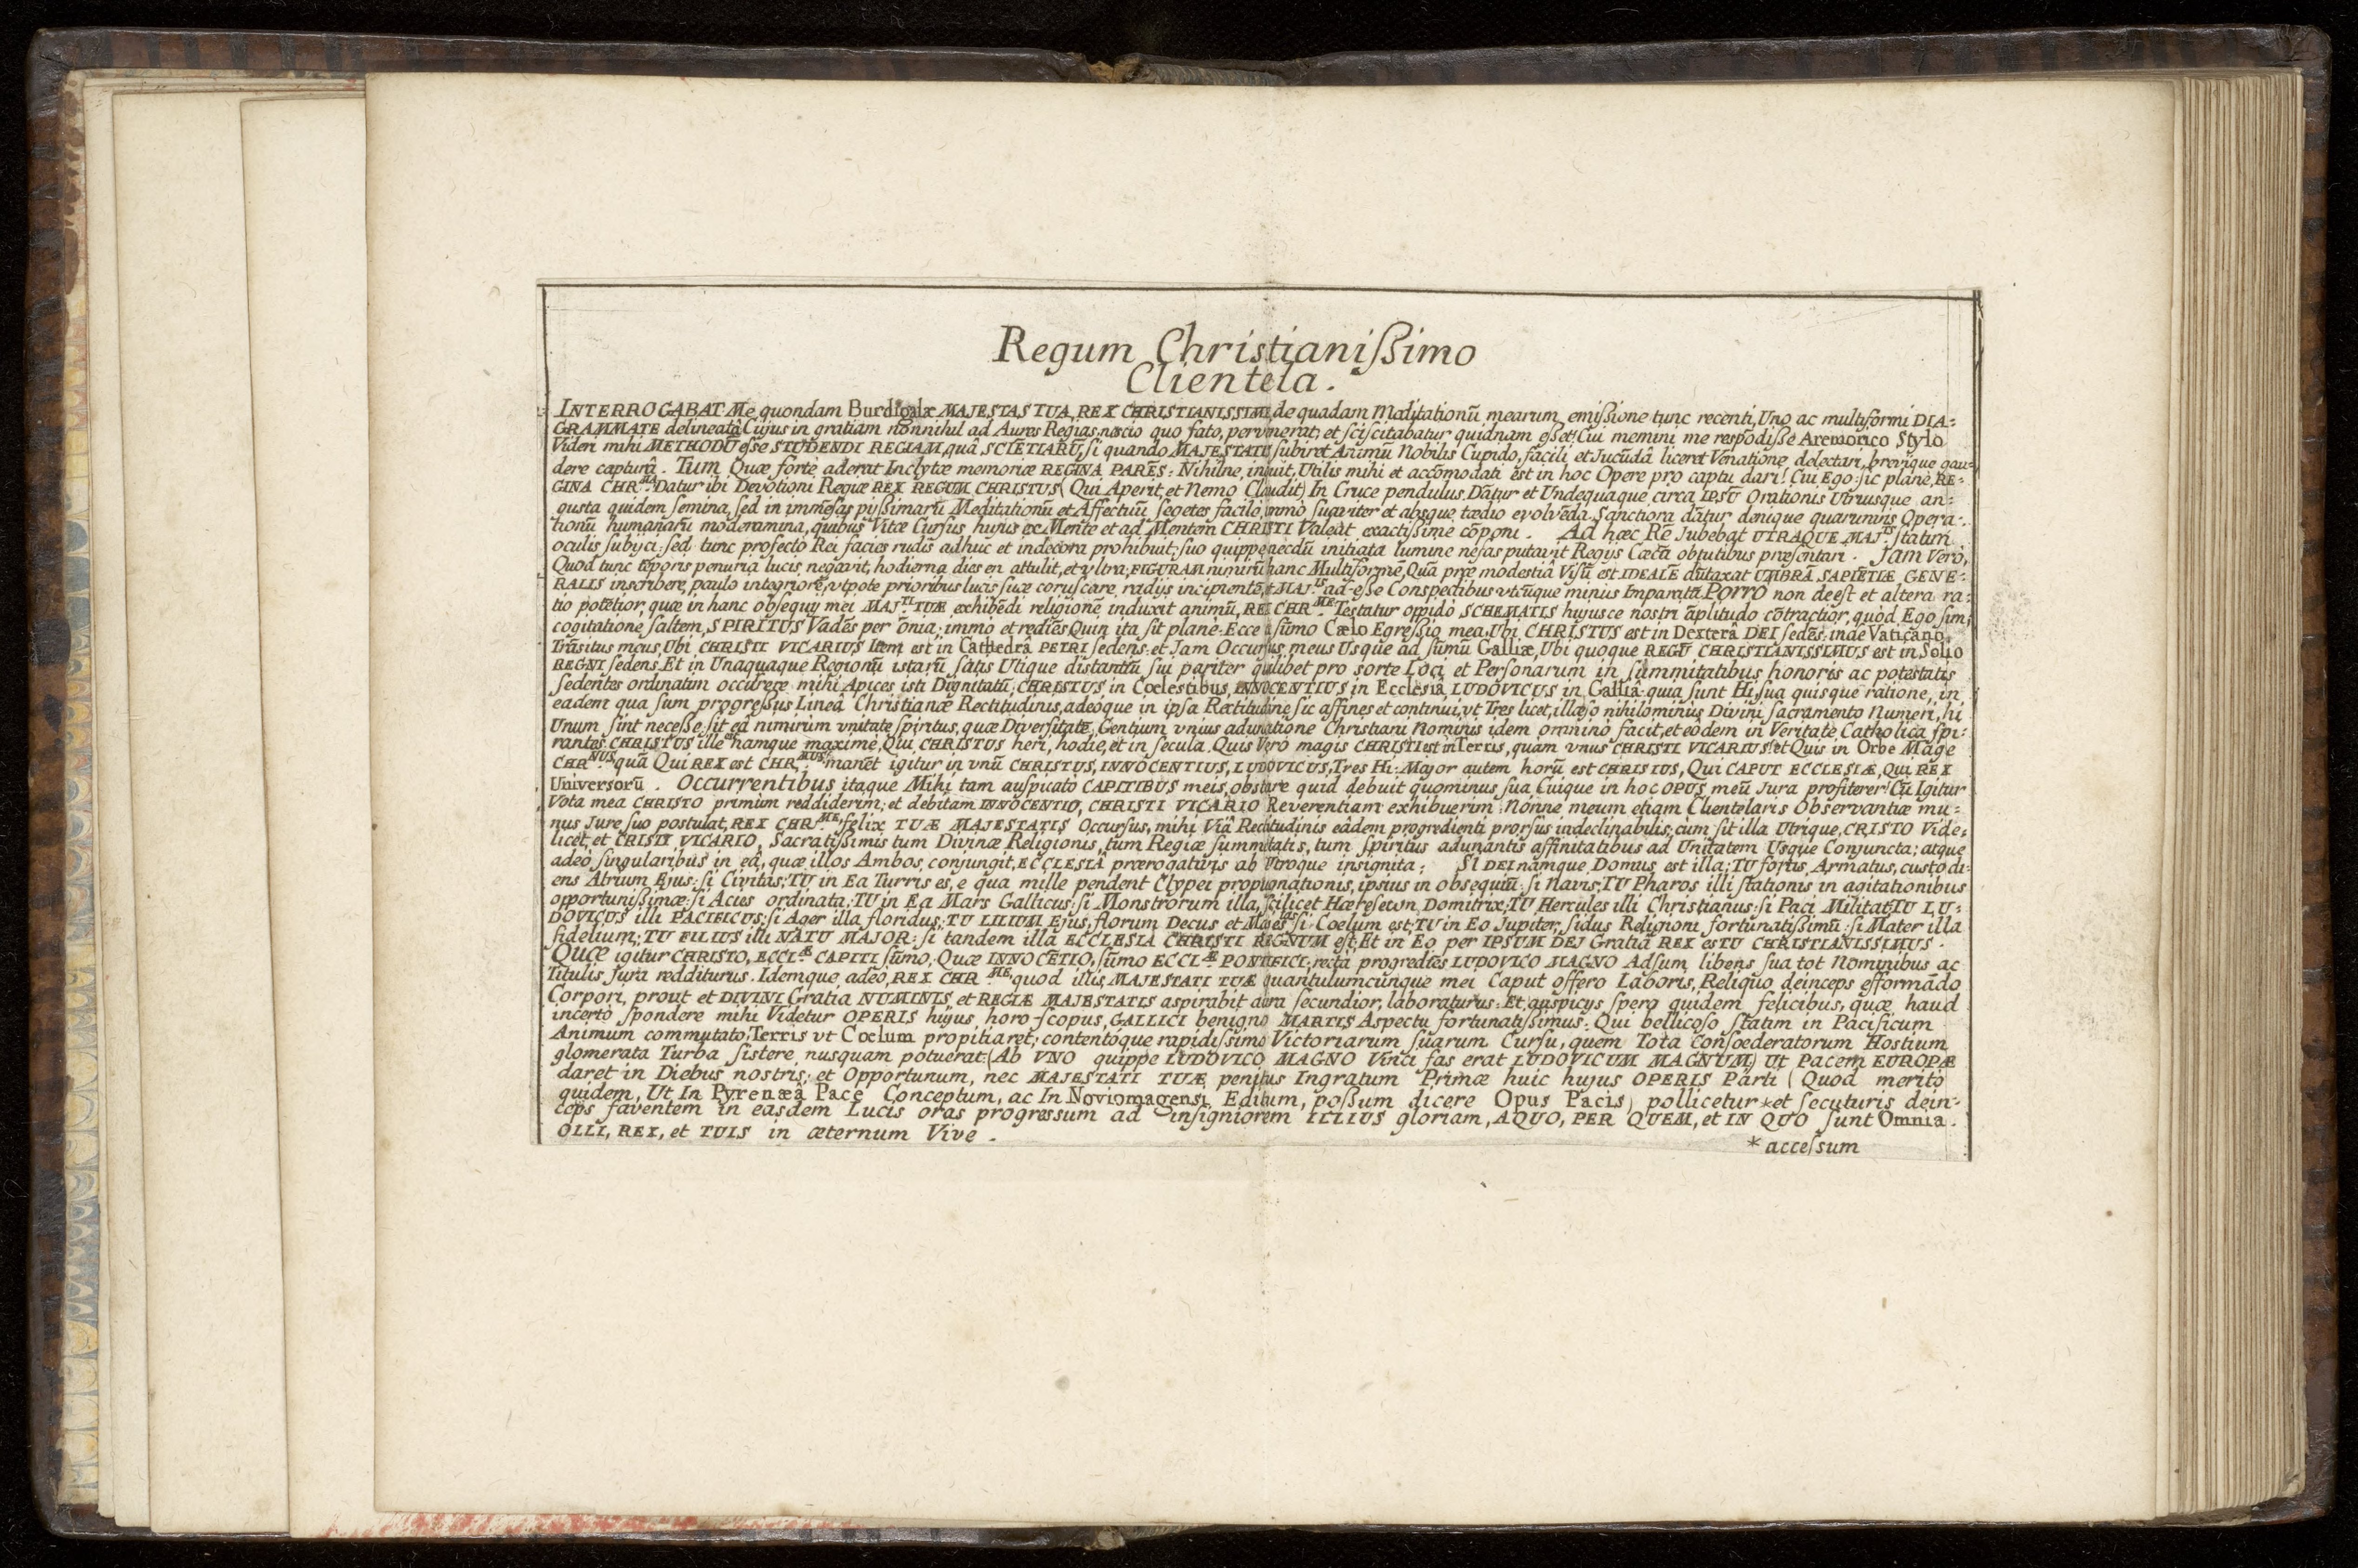 Regum Christianißimo
Clientela.
INTERROGABAT Me quondam Burdigalæ MAJESTAS TUA REX CHRISTIANISSIME de quadam Meditationū mearum emißione tunc recenti, Uno ac multiformi DIA-
GRAMMATE delineatâ Cujus in gratiam nonnihil ad Aures Regias, nescio quo fato, pervenerat; et sciscitabatur quidnam eßet! Cui memini me respōdiße Aremorico Stylo
Videri mihi METHODŪ eße STUDENDI REGIAM, quâ SCIĒTIARŪ, si quando MAJESTATĒ subiret Animū Nobilis Cupido, facili et Jucūdâ liceret Venatione delectari, brevique gau-
dere capturâ. Tum Quæ fortè aderat Inclytæ memoriæ REGINA PARĒS: Nihilne, inquit, Utilis mihi et accōmodati est in hoc Opere pro captu dari! Cui Ego: sic planè, RE-
GINA CHR.MA Datur ibi Devotioni Regiæ REX REGUM CHRISTUS (Qui Aperit, et Nemo Claudit) In Cruce pendulus. Dātur et Undequaque circa IPSŪ Orationis Utriusque an-
gusta quidem semina, sed in immēsas pijßimarū Meditationū et Affectuū segetes facilè, immò suaviter et absque tædio evolvēda. Sanctiora dātur denique quarumvis Opera-
tionū humanarū moderamina, quibus Vitæ Cursus hujus ex Mente et ad Mentem CHRISTI Valeat exactißime cōponi. Ad hæc Rē Jubebat UTRAQUE MAJ.TS statim
oculis subijci: sed tunc profecto Rei facies rudis adhuc et indecora prohibuit; suo quippe necdū initiata lumine nefas putavit Regijs Cæca obtutibus præsentari. Jam Verò,
Quod tunc tēporis penuria lucis negavit, hodierna dies en attulit, et vltra; FIGURAM nimirū hanc Multiformē, Quā præ modestiâ Visū est IDEALĒ dūtaxat UMBRĀ SAPIĒTIÆ GENE-
RALIS inscribere, paulo integriorē, vtpote prioribus lucis suæ coruscare radijs incipientē, et MAJ.TIS ad-eße Conspectibus vtcūque minus Imparatā. Porrò non deest et altera ra-
tio potētior, quæ in hanc obsequij mei MAJ.TI TUÆ exhibēdi religionē induxit animū, REX CHR.ME Testatur oppidò SCHEMATIS hujusce nostri āplitudo cōtractior, quòd Ego sim,
cogitatione saltem, SPIRITUS Vadēs per ōnia; immò et rediēs. Quin ita sit planè. Ecce a sūmo Cælo Egreßio mea, Ubi CHRISTUS est in Dexterâ DEI sedēs: inde Vaticano
Trāsitus meus, Ubi CHRISTI VICARIUS Item est in Cathedrâ PETRI sedens: et Jam Occursus meus Usque ad sūmū Galliæ, Ubi quoque REGŪ CHRISTIANISSIMUS est in Solio
REGNI sedens. Et in Unaquaque Regionū istarū, satis Utique distantiū sui pariter quilibet pro sorte Loci et Personarum in summitatibus honoris ac potestatis
sedentes ordinatim occurere mihi Apices isti Dignitatū; CHRISTUS in Cœlestibus, INNOCENTIUS in Ecclesiâ, LUDOVICUS in Galliâ: quia sunt Hi, sua quisque ratione, in
eadem qua sum progreßus Lineâ Christianæ Rectitudinis, adeoque in ipsa Rectitudine sic affines et continui, vt Tres licet, illæso nihilominùs Divini sacramento Numeri, hi
Unum sint neceße sit eâ nimirùm vnitate spiritus, quæ Diversitatē Gentium vnius adunatione Christiani Nominis idem omnino facit, et eodem in Veritate Catholica spi-
rantes. CHRISTUS ille est namque maximè, Qui CHRISTUS heri, hodie, et in secula. Quis Verò magis CHRISTI est in Terris, quàm vnus CHRISTI VICARIUS! et Quis in Orbe Mage
CHR.NUS quā Qui REX est CHR.MUS? manēt igitur in vnū CHRISTUS, INNOCENTIUS, LUDOVICUS, Tres Hi: Major autem horū est CHRISTUS, Qui CAPUT ECCLESIÆ, Qui REX
Universorū. Occurrentibus itaque Mihi tam auspicatò CAPITIBUS meis, obstare quid debuit quominus sua Cuique in hoc OPUS meū Jura profiterer! Cū Igitur
Vota mea CHRISTO primùm reddiderim; et debitam INNOCENTIO, CHRISTI VICARIO Reverentiam exhibuerim: Nonne meum etiam Clientelaris Observantiæ mu-
nus Jure suo postulat, REX CHR.ME, felix TUÆ MAJESTATIS Occursus, mihi Viâ Rectitudinis eâdem progredienti prorsùs indeclinabilis; cum sit illa Utrique, CRISTO Vide-
licet, et CRISTI VICARIO, Sacratißimis tum Divinæ Religionis, tum Regiæ summitatis, tum spiritus adunantis affinitatibus ad Unitatem Usque Conjuncta; atque
adeò singularibus in eâ, quæ illos Ambos conjungit, ECCLESIÂ prærogativis ab Vtroque insignita: SI DEI namque Domus est illa; TU fortis Armatus, custodi-
ens Atrium Ejus: si Civitas; TU in Ea Turris es, e qua mille pendent Clypei propugnationis, ipsius in obsequiū: si Navis; TU Pharos illi stationis in agitationibus
opportunißimæ: si Acies ordinata; TU in Ea Mars Gallicus: si Monstrorum illa, scilicet Hæreseωn, Domitrix; TU Hercules illi Christianus: si Paci Militat; TU LU-
DOVICUS illi PACIFICUS: si Ager illa floridus; TU LILIUM Ejus, florum Decus et Majestas: si Cœlum est; TU in Eo Jupiter, sidus Religioni fortunatißimū: si Mater illa
fidelium; TU FILIUS illi NATU MAJOR: si tandem illa ECCLESIA CHRISTI REGNUM est; Et in Eo per IPSUM DEJ Gratiâ REX es TU CHRISTIANISSIMUS.
Quæ igitur CHRISTO, ECCL.Æ CAPITI sūmo, Quæ INNOCĒTIO, sūmo ECCL.Æ PONTIFICI; rectà progrediēs LUDOVICO MAGNO Adsum libens sua tot Nominibus ac
Titulis Jura redditurus. Idemque adeò, REX CHR.ME, quod illis, MAJESTATI TUÆ quantulumcūnque mei Caput offero Laboris, Reliquo deinceps efformādo
Corpori, prout et DIVINI Gratia NUMINIS et REGIÆ MAJESTATIS aspirabit aura secundior, laboraturus. Et auspicijs spero quidem felicibus, quæ haud
incertò spondere mihi Videtur OPERIS hujus horo-scopus, GALLICI benigno MARTIS Aspectu fortunatißimus: Qui bellicoso statim in Pacificum
Animum commutato, Terris vt Cœlum propitiaret; contentóque rapidißimo Victoriarum suarum Cursu, quem Tota Confœderatorum Hostium
glomerata Turba sistere nusquam potuerat: (Ab VNO quippe LUDOVICO MAGNO Vinci fas erat LUDOVICUM MAGNUM) Ut Pacem EUROPÆ
daret in Diebus nostris; et Opportunum, nec MAJESTATI TUÆ penitus Ingratum Primæ huic hujus OPERIS Parti (Quod meritò
quidem, Ut In Pyrenæâ Pace Conceptum, ac In Noviomagensi Editum, poßum dicere Opus Pacis) pollicetur * et secuturis dein-
ceps faventem in easdem Lucis oras progressum ad insigniorem ILLIUS gloriam, A QUO, PER QUEM, et IN QUO sunt Omnia.
OLLI, REX, et TUIS in æternum Vive.
* accessum